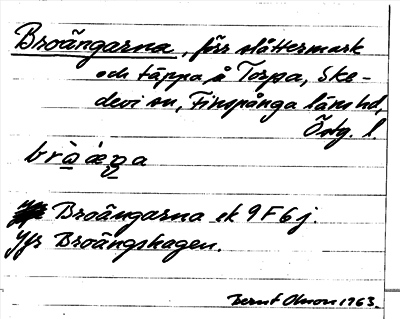 Broängarna, förr slåttermark
och täppa, å Torpa, Ske-
devi sn, Finspånga läns hd,
Östg. l.
Broängarna ek 9F6j.
Jfr Broängshagen.
Bernt Olsson 1963.